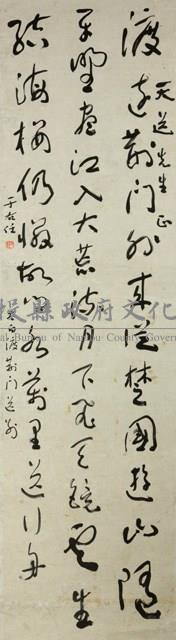 天送先生正
渡遠荊門外來從楚國遊山隨
平野盡江入大荒流月下飛天鏡雲生
結海樓仍憐故鄉水萬里送行舟
李白渡荊門送別
于右任
投縣政府文化
al Bureau of Nantou County Govern